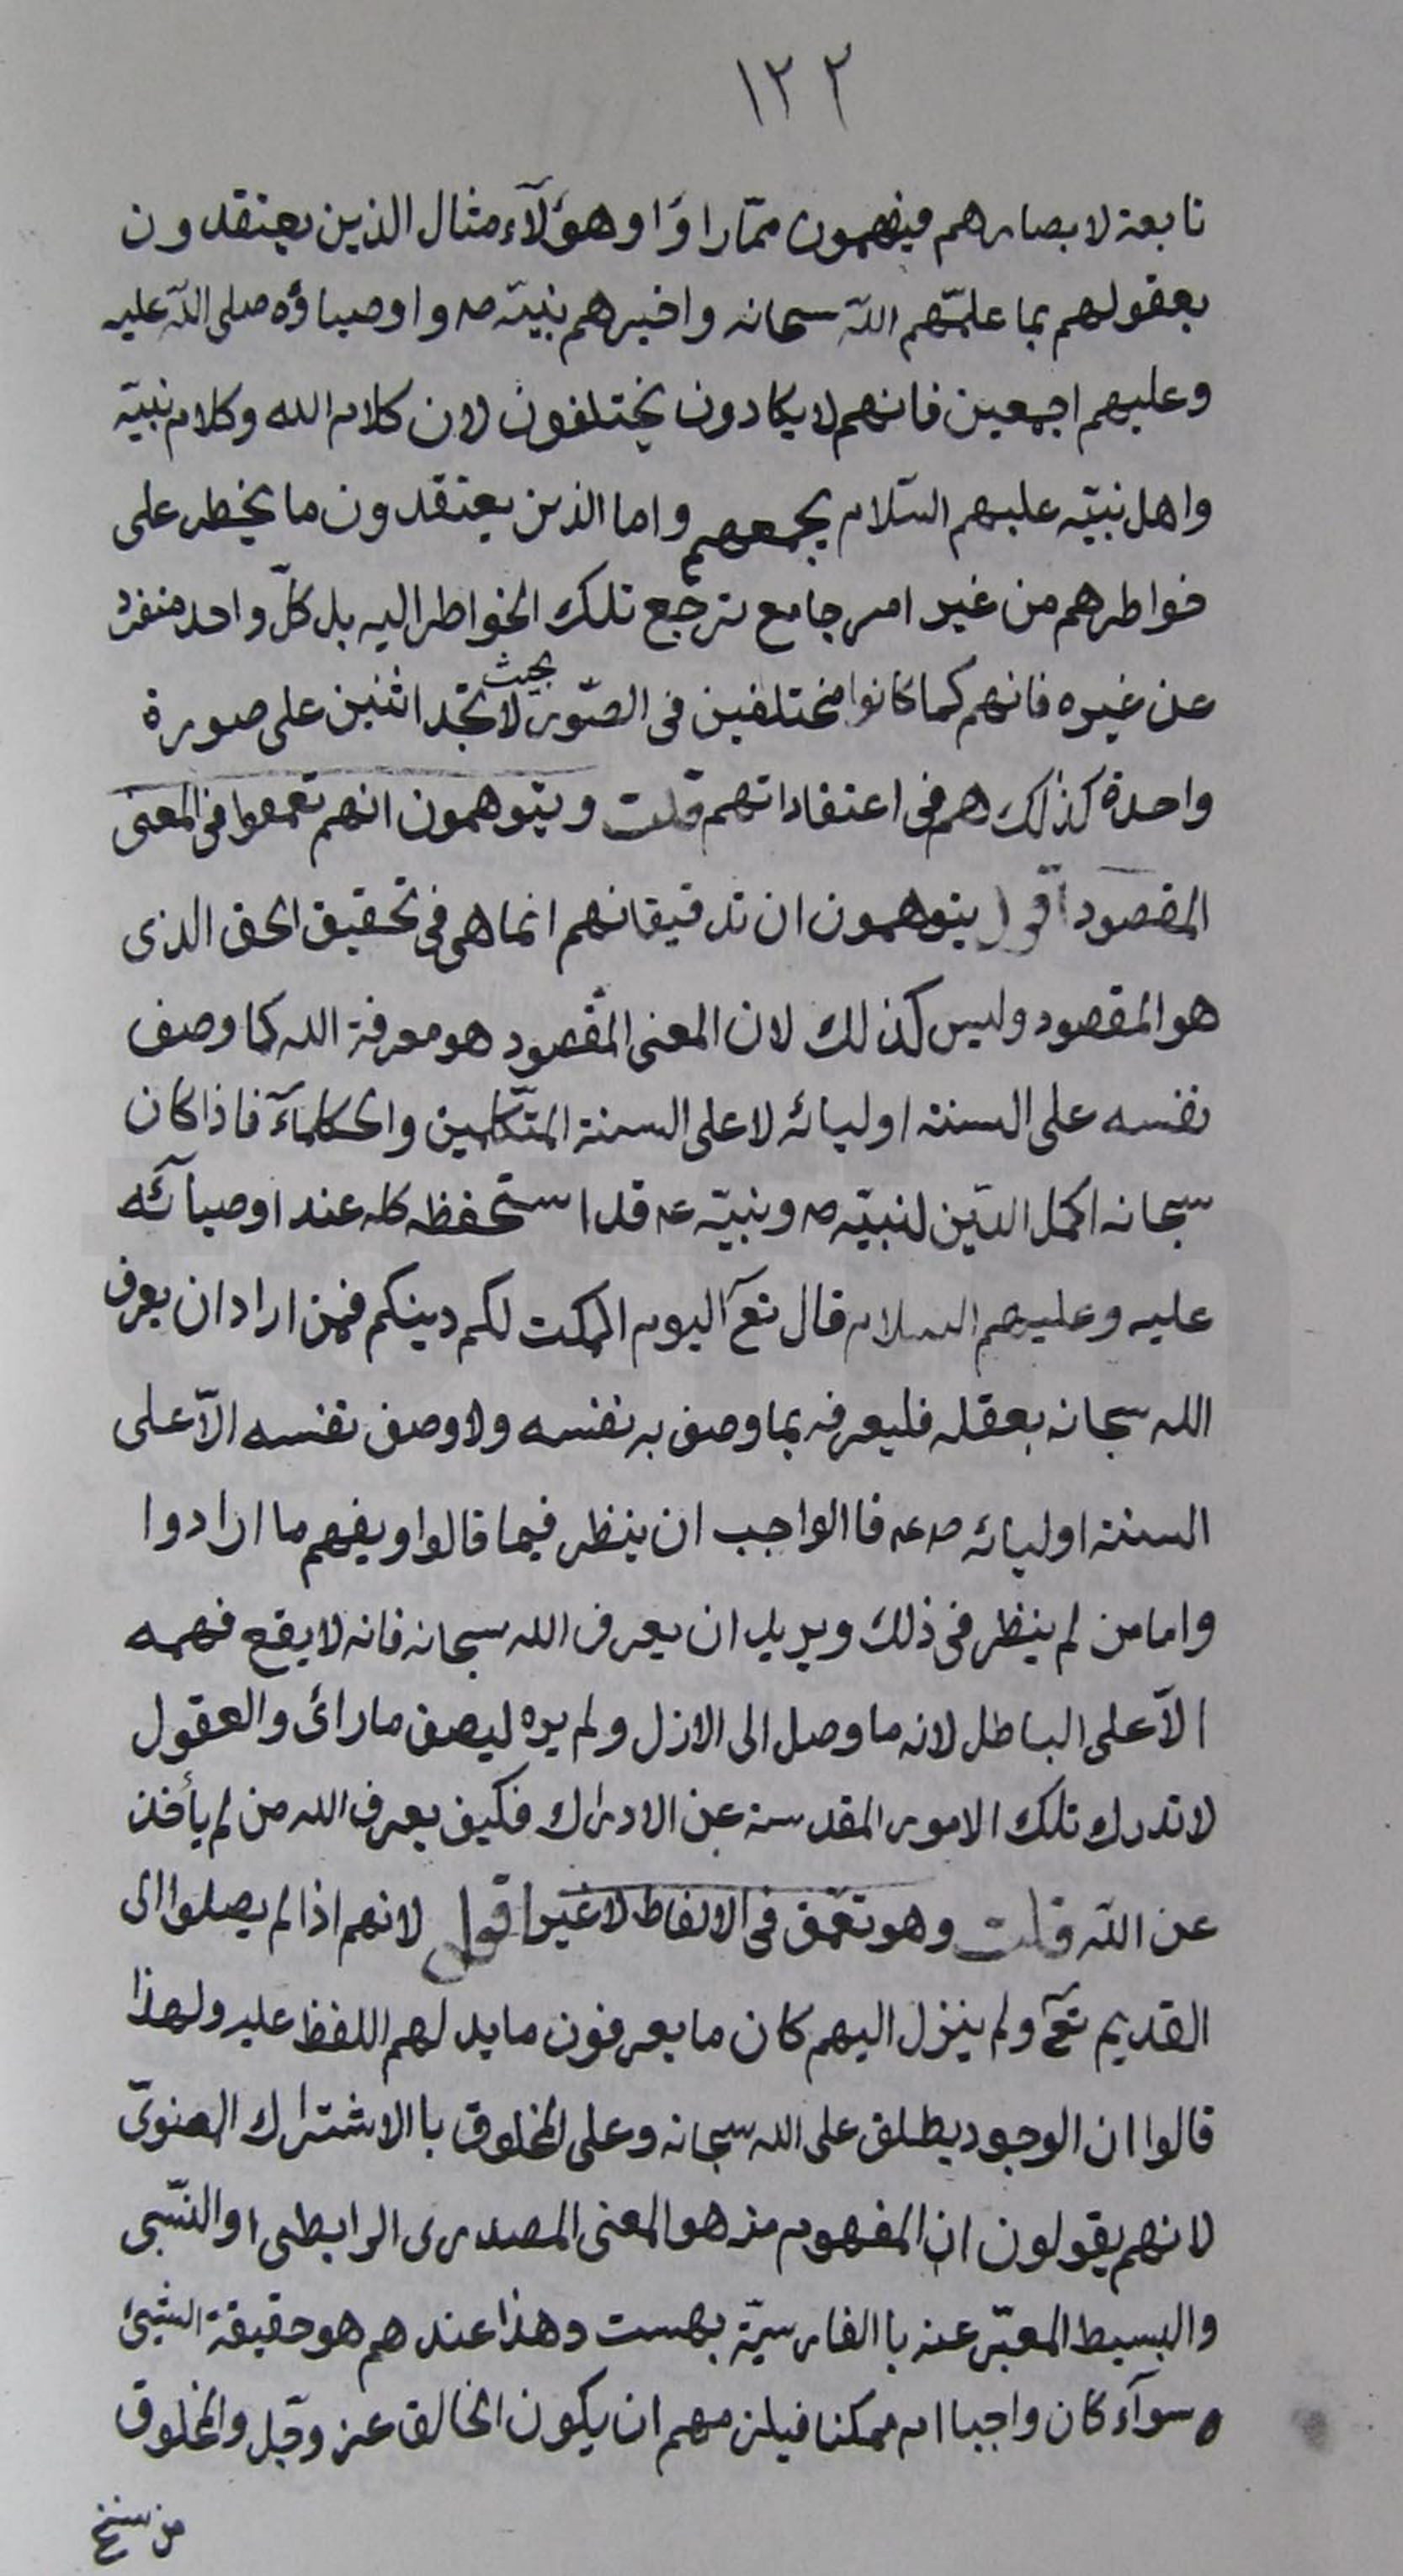 ١٢٢
تابعة لابصارهم فيفهمون ممّا راوَا وهؤلآء مثال الذين يعتقدون
بعقولهم بما علمّهم اللّه سبحانه واخبرهم نبيّه صه واوصياؤه صلى اللّه عليه
وعليهم اجمعين فانهم لا يكادون يختلفون لان كلام الله وكلام نبيّه
واهل نبيّه عليهم السّلام يجمعهم واما الذين يعتقدون ما يخطر على
خواطرهم من غير امر جامع ترجع تلك الخواطر اليه بل كلّ واحد منفرد
عن غيره فانهم كما كانوا مختلفين فى الصّور بحيث لا تجد اثنين على صورة
واحدة كذلك هم فى اعتقاداتهم قلت ويتوهمون انهم تعمقوا فى المعنى
المقصود اقول يتوهمون ان تدقيقاتهم انما هى فى تحقيق الحق الذى
هو المقصود وليس كذلك لان المعنى المقصود هو معرفة الله كما وصف
نفسه على السنة اوليائه لا على السنة المتكلمين والحكمآء فاذا كان
سبحانه اكمل الدّين لنبيّه صه ونبيّه عه قد استحفظه كله عند اوصيآئه
عليه وعليهم السلام قال تعٓ اليوم اكملت لكم دينكم فمن اراد ان يعرف
الله سبحانه بعقله فليعرفه بما وصف به نفسه ولا وصف نفسه الّا على
السنة اوليائه صه عه فاالواجب ان ينظر فيما قالوا ويفهم ما ارادوا
واما من لم ينظر فى ذلك ويريد ان يعرف الله سبحانه فانه لا يقع فهمه
الّا على الباطل لانه ما وصل الى الازل ولم يره ليصف ما رائ والعقول
لا تدرك تلك الامور المقدسة عن الادراك فكيف يعرف الله من لم يأخذ
عن اللّه قلت وهو تعمّق فى الالفاظ لا غير اقول لانهم اذا لم يصلوا الى
القديم تعٓ ولم ينزل اليهم كان ما يعرفون ما يدلهم اللفظ عليه ولهذا
قالوا ان الوجود يطلق على الله سبحانه وعلى المخلوق باالاشتراك المعنوىّ
لانهم يقولون ان المفهوم منه هو المعنى المصدرى الرابطى او النّسبى
والبسيط المعبّر عنه باالفارسيّة بهست وهذا عندهم هو حقيقة الشيئ
ه سوآء كان واجبا ام ممكنا فيلزمهم ان يكون الخالق عز وجّل والمخلوق
من سنخ